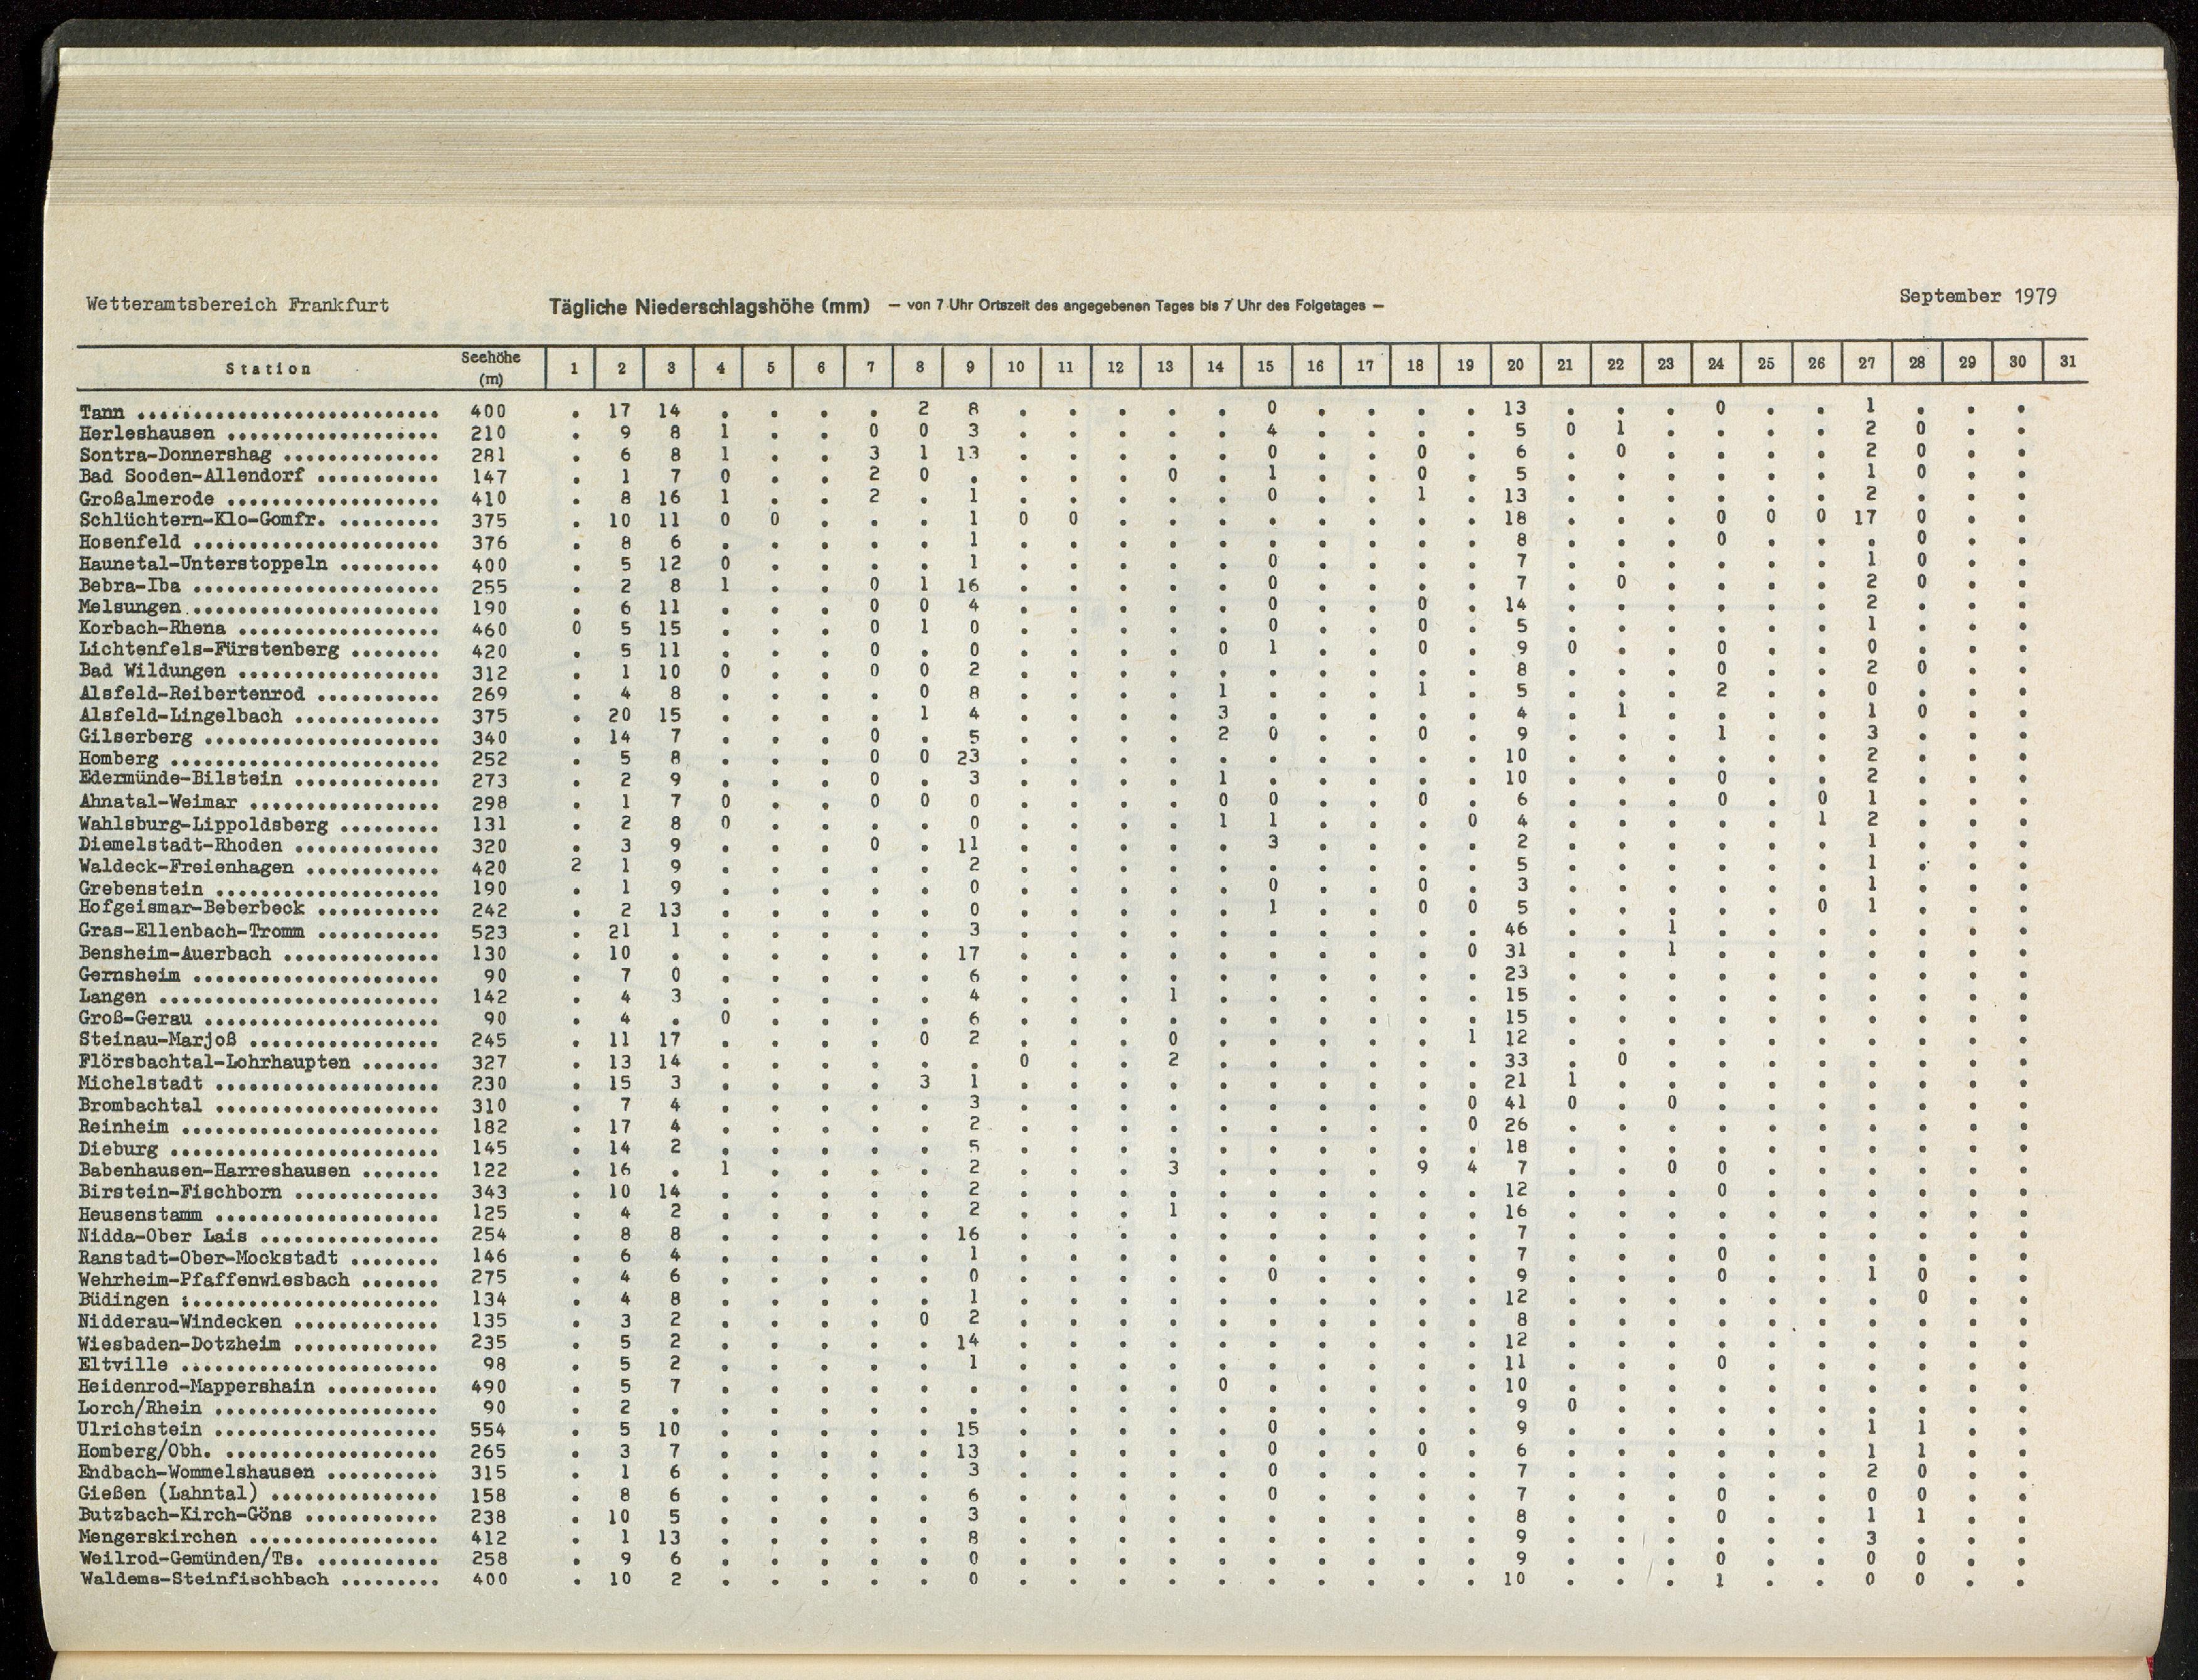 Wetteramtsbereich Frankfurt Tägliche Niederschlagshöhe (mm) — von 7 Uhr Ortszeit des angegebenen Tages bis 7 Uhr des Folgetages — September 1979
Station Seehöhe (m) 1 2 3 4 5 6 7 8 9 10 11 12 13 14 15 16 17 18 19 20 21 22 23 24 25 26 27 28 29 30 31
Tann ........................... 400 . 17 14 . . . . 2 8 . . . . . 0 . . . . 13 . . . 0 . . 1 . . .
Herleshausen ................... 210 . 9 8 1 . . 0 0 3 . . . . . 4 . . . . 5 0 1 . . . . 2 0 . .
Sontra-Donnershag .............. 281 . 6 8 1 . . 3 1 13 . . . . . 0 . . 0 . 6 . 0 . . . . 2 0 . .
Bad Sooden-Allendorf ........... 147 . 1 7 0 . . 2 0 . . . . 0 . 1 . . 0 . 5 . . . . . . 1 0 . .
Großalmerode ................... 410 . 8 16 1 . . 2 . 1 . . . . . 0 . . 1 . 13 . . . . . . 2 . . .
Schlüchtern-Klo-Gomfr. ......... 375 . 10 11 0 0 . . . 1 0 0 . . . . . . . . 18 . . . 0 0 0 17 0 . .
Hosenfeld ...................... 376 . 8 6 . . . . . 1 . . . . . . . . . . 8 . . . 0 . . . 0 . .
Haunetal-Unterstoppeln ......... 400 . 5 12 0 . . . . 1 . . . . . 0 . . . . 7 . . . . . . 1 0 . .
Bebra-Iba ...................... 255 . 2 8 1 . . 0 1 16 . . . . . 0 . . . . 7 . 0 . . . . 2 0 . .
Melsungen ...................... 190 . 6 11 . . . 0 0 4 . . . . . 0 . . 0 . 14 . . . . . . 2 . . .
Korbach-Rhena .................. 460 0 5 15 . . . 0 1 0 . . . . . 0 . . 0 . 5 . . . . . . 1 . . .
Lichtenfels-Fürstenberg ........ 420 . 5 11 . . . 0 . 0 . . . . 0 1 . . 0 . 9 0 . . 0 . . 0 . . .
Bad Wildungen .................. 312 . 1 10 0 . . 0 0 2 . . . . . . . . . . 8 . . . 0 . . 2 0 . .
Alsfeld-Reibertenrod ........... 269 . 4 8 . . . . 0 8 . . . . 1 . . . 1 . 5 . . . 2 . . 0 . . .
Alsfeld-Lingelbach ............. 375 . 20 15 . . . . 1 4 . . . . 3 . . . . . 4 . 1 . . . . 1 0 . .
Gilserberg ..................... 340 . 14 7 . . . 0 . 5 . . . . 2 0 . . 0 . 9 . . . 1 . . 3 . . .
Homberg ........................ 252 . 5 8 . . . 0 0 23 . . . . . . . . . . 10 . . . . . . 2 . . .
Edermünde-Bilstein ............. 273 . 2 9 . . . 0 . 3 . . . . 1 . . . . . 10 . . . 0 . . 2 . . .
Ahnatal-Weimar ................. 298 . 1 7 0 . . 0 0 0 . . . . 0 0 . . 0 . 6 . . . 0 . 0 1 . . .
Wahlsburg-Lippoldsberg ......... 131 . 2 8 0 . . . . 0 . . . . 1 1 . . . 0 4 . . . . . 1 2 . . .
Diemelstadt-Rhoden ............. 320 . 3 9 . . . 0 . 11 . . . . . 3 . . . . 2 . . . . . . 1 . . .
Waldeck-Freienhagen ............ 420 2 1 9 . . . . . 2 . . . . . . . . . . 5 . . . . . . 1 . . .
Grebenstein .................... 190 . 1 9 . . . . . 0 . . . . . 0 . . 0 . 3 . . . . . . 1 . . .
Hofgeismar-Beberbeck ........... 242 . 2 13 . . . . . 0 . . . . . 1 . . 0 0 5 . . . . . 0 1 . . .
Gras-Ellenbach-Tromm ........... 523 . 21 1 . . . . . 3 . . . . . . . . . . 46 . . 1 . . . . . . .
Bensheim-Auerbach .............. 130 . 10 . . . . . . 17 . . . . . . . . . 0 31 . . 1 . . . . . . .
Gernsheim ...................... 90 . 7 0 . . . . . 6 . . . . . . . . . . 23 . . . . . . . . . .
Langen ......................... 142 . 4 3 . . . . . 4 . . . 1 . . . . . . 15 . . . . . . . . . .
Groß-Gerau ..................... 90 . 4 . 0 . . . . 6 . . . . . . . . . . 15 . . . . . . . . . .
Steinau-Marjoß ................. 245 . 11 17 . . . . 0 2 . . . 0 . . . . . 1 12 . . . . . . . . . .
Flörsbachtal-Lohrhaupten ....... 327 . 13 14 . . . . . . 0 . . 2 . . . . . . 33 . 0 . . . . . . . .
Michelstadt .................... 230 . 15 3 . . . . 3 1 . . . . . . . . . . 21 1 . . . . . . . . .
Brombachtal .................... 310 . 7 4 . . . . . 3 . . . . . . . . . 0 41 0 . 0 . . . . . . .
Reinheim ....................... 182 . 17 4 . . . . . 2 . . . . . . . . . 0 26 . . . . . . . . . .
Dieburg ........................ 145 . 14 2 . . . . . 5 . . . . . . . . . . 18 . . . . . . . . . .
Babenhausen-Harreshausen ....... 122 . 16 . 1 . . . . 2 . . . 3 . . . . 9 4 7 . . 0 0 . . . . . .
Birstein-Fischborn ............. 343 . 10 14 . . . . . 2 . . . . . . . . . . 12 . . . 0 . . . . . .
Heusenstamm .................... 125 . 4 2 . . . . . 2 . . . 1 . . . . . . 16 . . . . . . . . . .
Nidda-Ober Lais ................ 254 . 8 8 . . . . . 16 . . . . . . . . . . 7 . . . . . . . . . .
Ranstadt-Ober-Mockstadt ........ 146 . 6 4 . . . . . 1 . . . . . . . . . . 7 . . . 0 . . . . . .
Wehrheim-Pfaffenwiesbach ....... 275 . 4 6 . . . . . 0 . . . . . 0 . . . . 9 . . . 0 . . 1 0 . .
Büdingen ....................... 134 . 4 8 . . . . . 1 . . . . . . . . . . 12 . . . . . . . 0 . .
Nidderau-Windecken ............. 135 . 3 2 . . . . 0 2 . . . . . . . . . . 8 . . . . . . . . . .
Wiesbaden-Dotzheim ............. 235 . 5 2 . . . . . 14 . . . . . . . . . . 12 . . . . . . . . . .
Eltville ....................... 98 . 5 2 . . . . . 1 . . . . . . . . . . 11 . . . 0 . . . . . .
Heidenrod-Mappershain .......... 490 . 5 7 . . . . . . . . . . 0 . . . . . 10 . . . . . . . . . .
Lorch/Rhein .................... 90 . 2 . . . . . . . . . . . . . . . . . 9 0 . . . . . . . . .
Ulrichstein .................... 554 . 5 10 . . . . . 15 . . . . . 0 . . . . 9 . . . . . . 1 1 . .
Homberg/Obh. ................... 265 . 3 7 . . . . . 13 . . . . . 0 . . 0 . 6 . . . . . . 1 1 . .
Endbach-Wommelshausen .......... 315 . 1 6 . . . . . 3 . . . . . 0 . . . . 7 . . . . . . 2 0 . .
Gießen (Lahntal) ............... 158 . 8 6 . . . . . 6 . . . . . 0 . . . . 7 . . . 0 . . 0 0 . .
Butzbach-Kirch-Göns ............ 238 . 10 5 . . . . . 3 . . . . . . . . . . 8 . . . 0 . . 1 1 . .
Mengerskirchen ................. 412 . 1 13 . . . . . 8 . . . . . . . . . . 9 . . . . . . 3 . . .
Weilrod-Gemünden/Ts. ........... 258 . 9 6 . . . . . 0 . . . . . . . . . . 9 . . . 0 . . 0 0 . .
Waldems-Steinfischbach ......... 400 . 10 2 . . . . . 0 . . . . . . . . . . 10 . . . 1 . . 0 0 . .